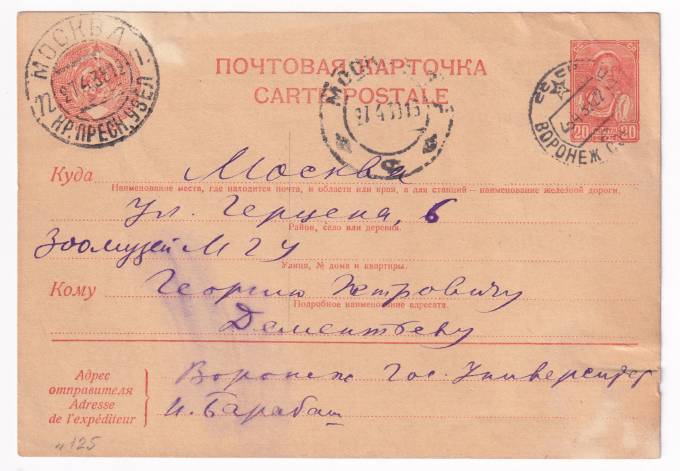 МОСКВА
27.4.38.12
КР.ПРЕСН.УЗЕЛ
ПОЧТОВАЯ КАРТОЧКА
CARTE POSTALE
ВОРОНЕЖ
20 20
Куда Москва
Наименование места, где находится почта, и области или края, а для станций — наименование железной дороги.
Ул. Герцена, 6
Район, село или деревня.
Зоомузей МГУ
Улица, № дома и квартиры.
Кому Георгию Петровичу
Подробное наименование адресата.
Дементьеву
Адрес
отправителя
Adresse
de l'expéditeur
Воронеж Гос. Университет
И. Барабаш
125